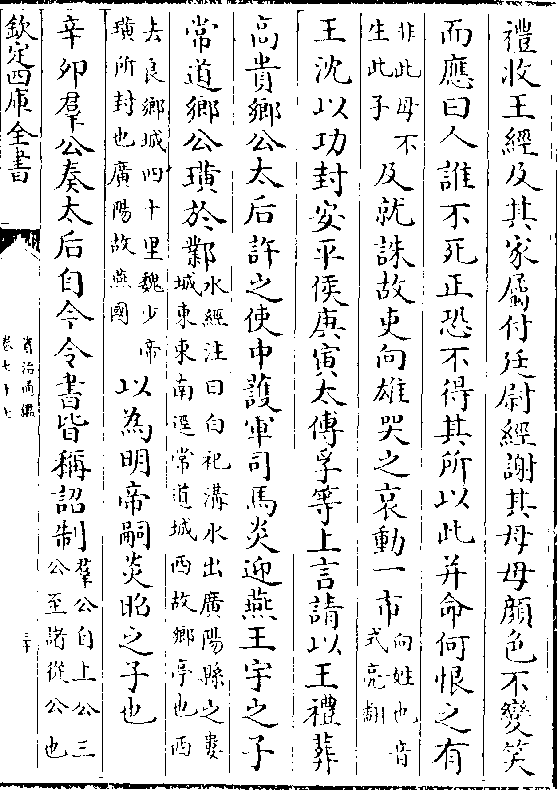 禮收王經及其家屬付廷尉經謝其母母顏色不變笑
而應曰人誰不死正恐不得其所以此并命何恨之有
非此母不
生此子
及就誅故吏向雄哭之哀動一市
向姓也音
式亮翻
王沈以功封安平侯庚寅太傅孚等上言請以王禮葬
高貴鄉公太后許之使中護軍司馬炎迎燕王宇之子
常道鄉公璜於鄴
水經注曰白祀溝水出廣陽縣之婁
城東東南逕常道城西故鄉亭也西
去良鄉城四十里魏少帝
璜所封也廣陽故燕國
以為明帝嗣炎昭之子也
辛卯羣公奏太后自今令書皆稱詔制
羣公自上公三
公至諸從公也
欽定四庫全書
資治通鑑
卷七十七
三十